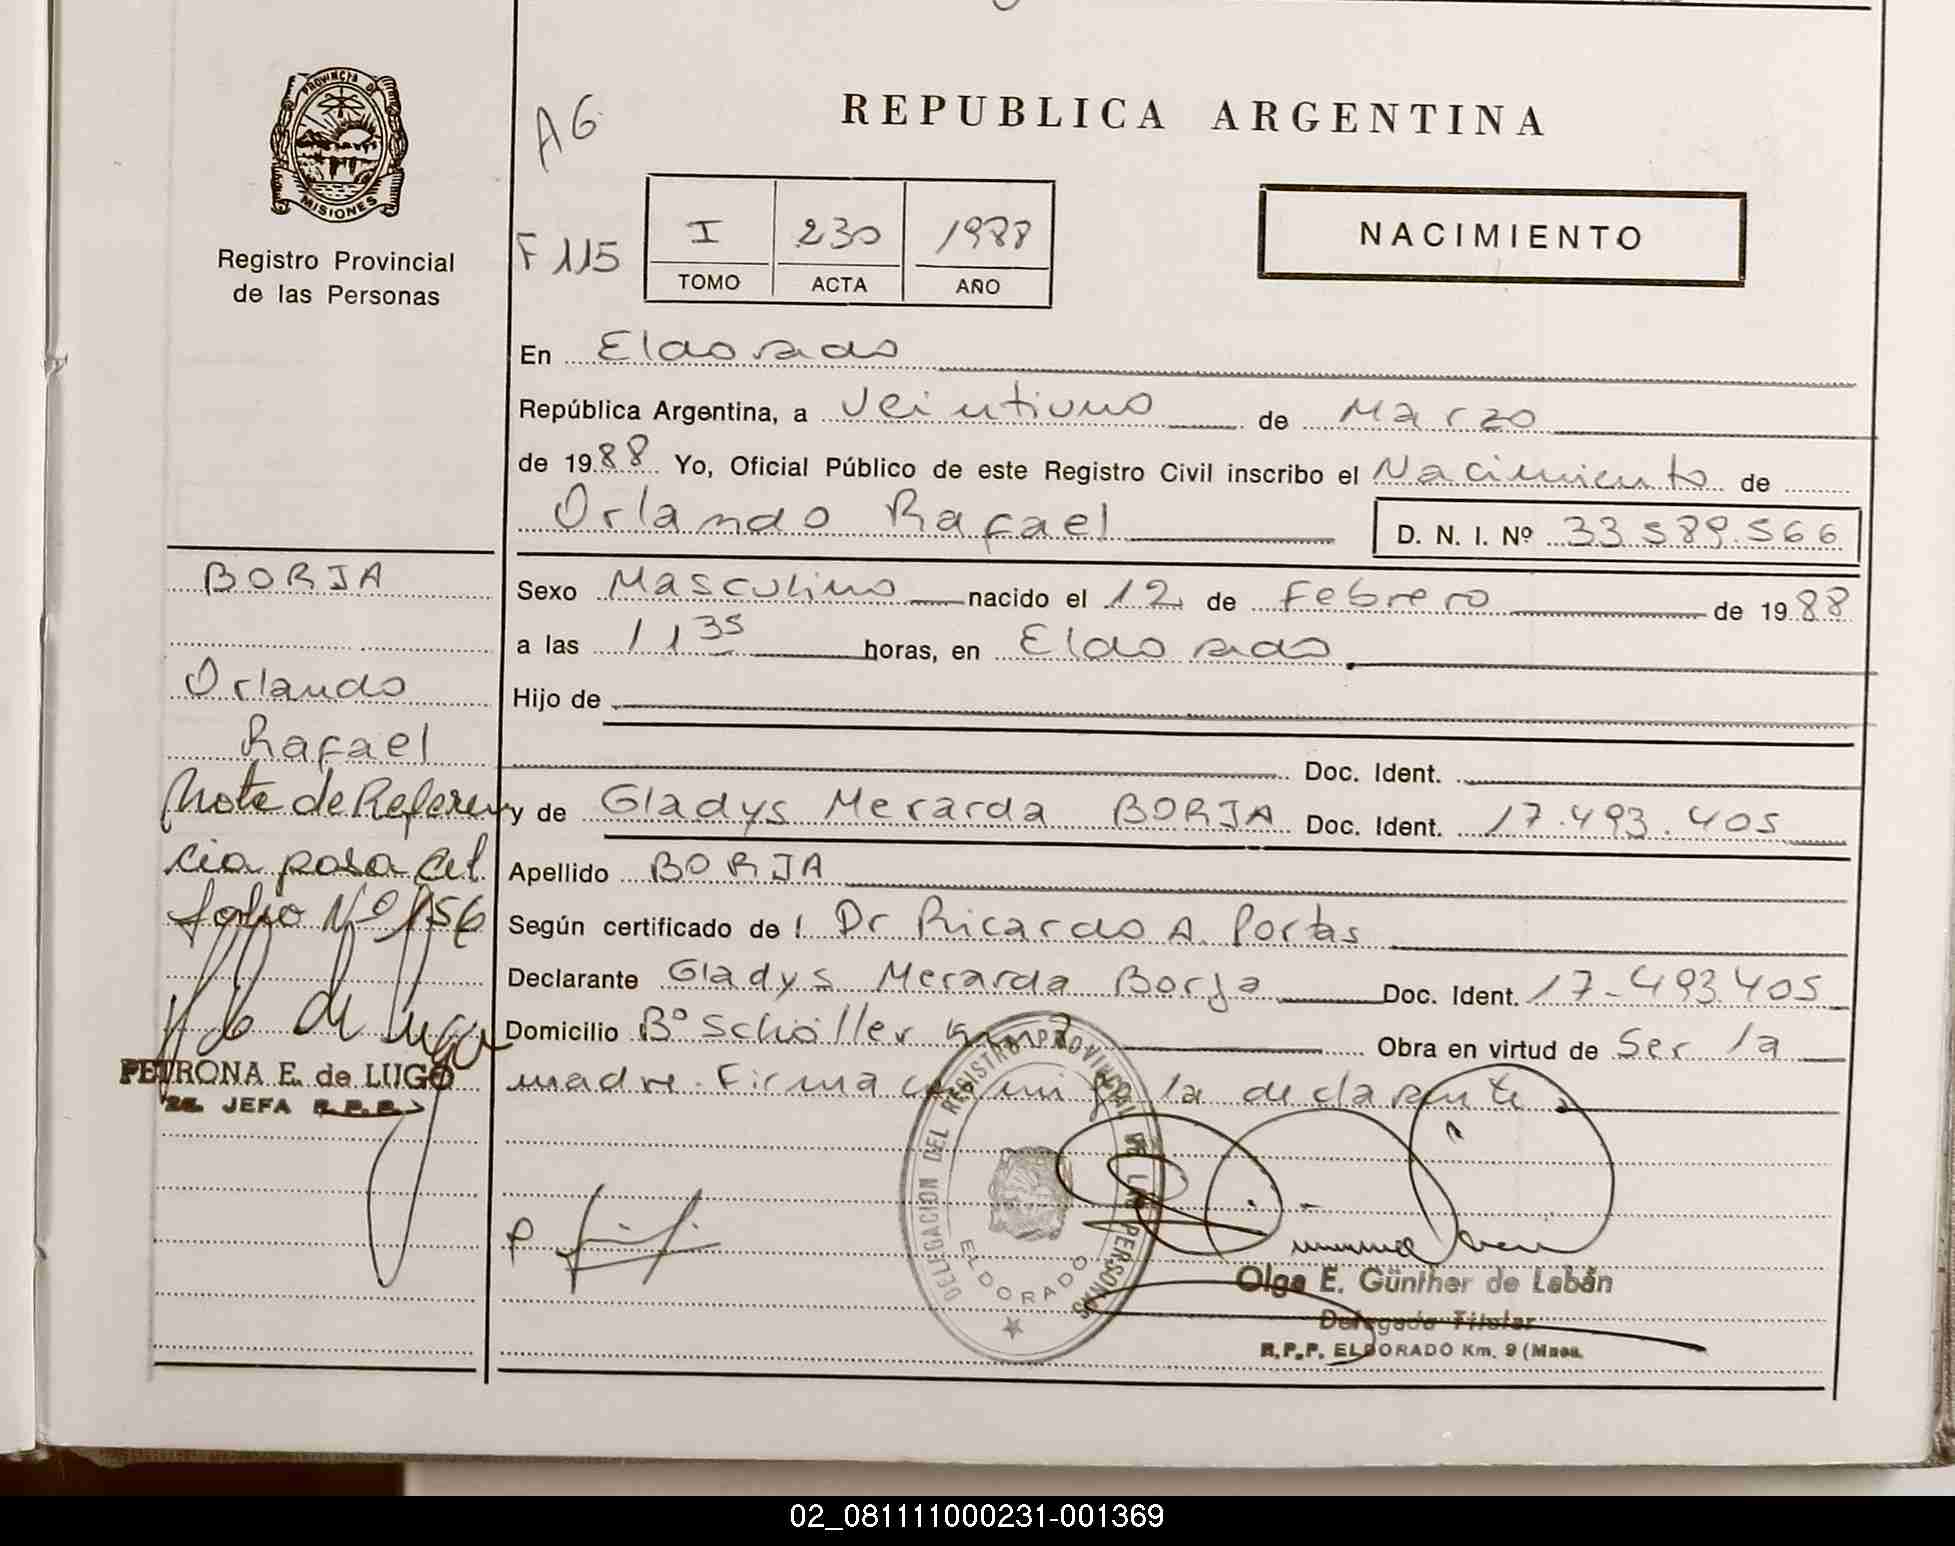 PROVINCIA DE
MISIONES
Registro Provincial
de las Personas
AG
REPUBLICA ARGENTINA
F 115
I 230 1988
TOMO ACTA AÑO
NACIMIENTO
En Eldorado
República Argentina, a Veintiuno de Marzo
de 1988 Yo, Oficial Público de este Registro Civil inscribo el Nacimiento de
Orlando Rafael D. N. I. Nº 33.589.566
BORJA
Orlando
Rafael
Nota de Referen
cia pasa al
folio Nº 156
PETRONA E. de LUGO
JEFA R.P.P.
Sexo Masculino nacido el 12 de Febrero de 1988
a las 11 35 horas, en Eldorado
Hijo de
Doc. Ident.
y de Gladys Merarda BORJA Doc. Ident. 17.493.405
Apellido BORJA
Según certificado de Dr Ricardo A. Portas
Declarante Gladys Merarda Borja Doc. Ident. 17-493.405
Domicilio Bº Schöller Obra en virtud de Ser la
madre. Firma la declarante
DELEGACION DEL REGISTRO PROVINCIAL DE LAS PERSONAS
ELDORADO
Olga E. Günther de Labán
Delegada Titular
R.P.P. ELDORADO Km. 9 (Mnes.
02_081111000231-001369